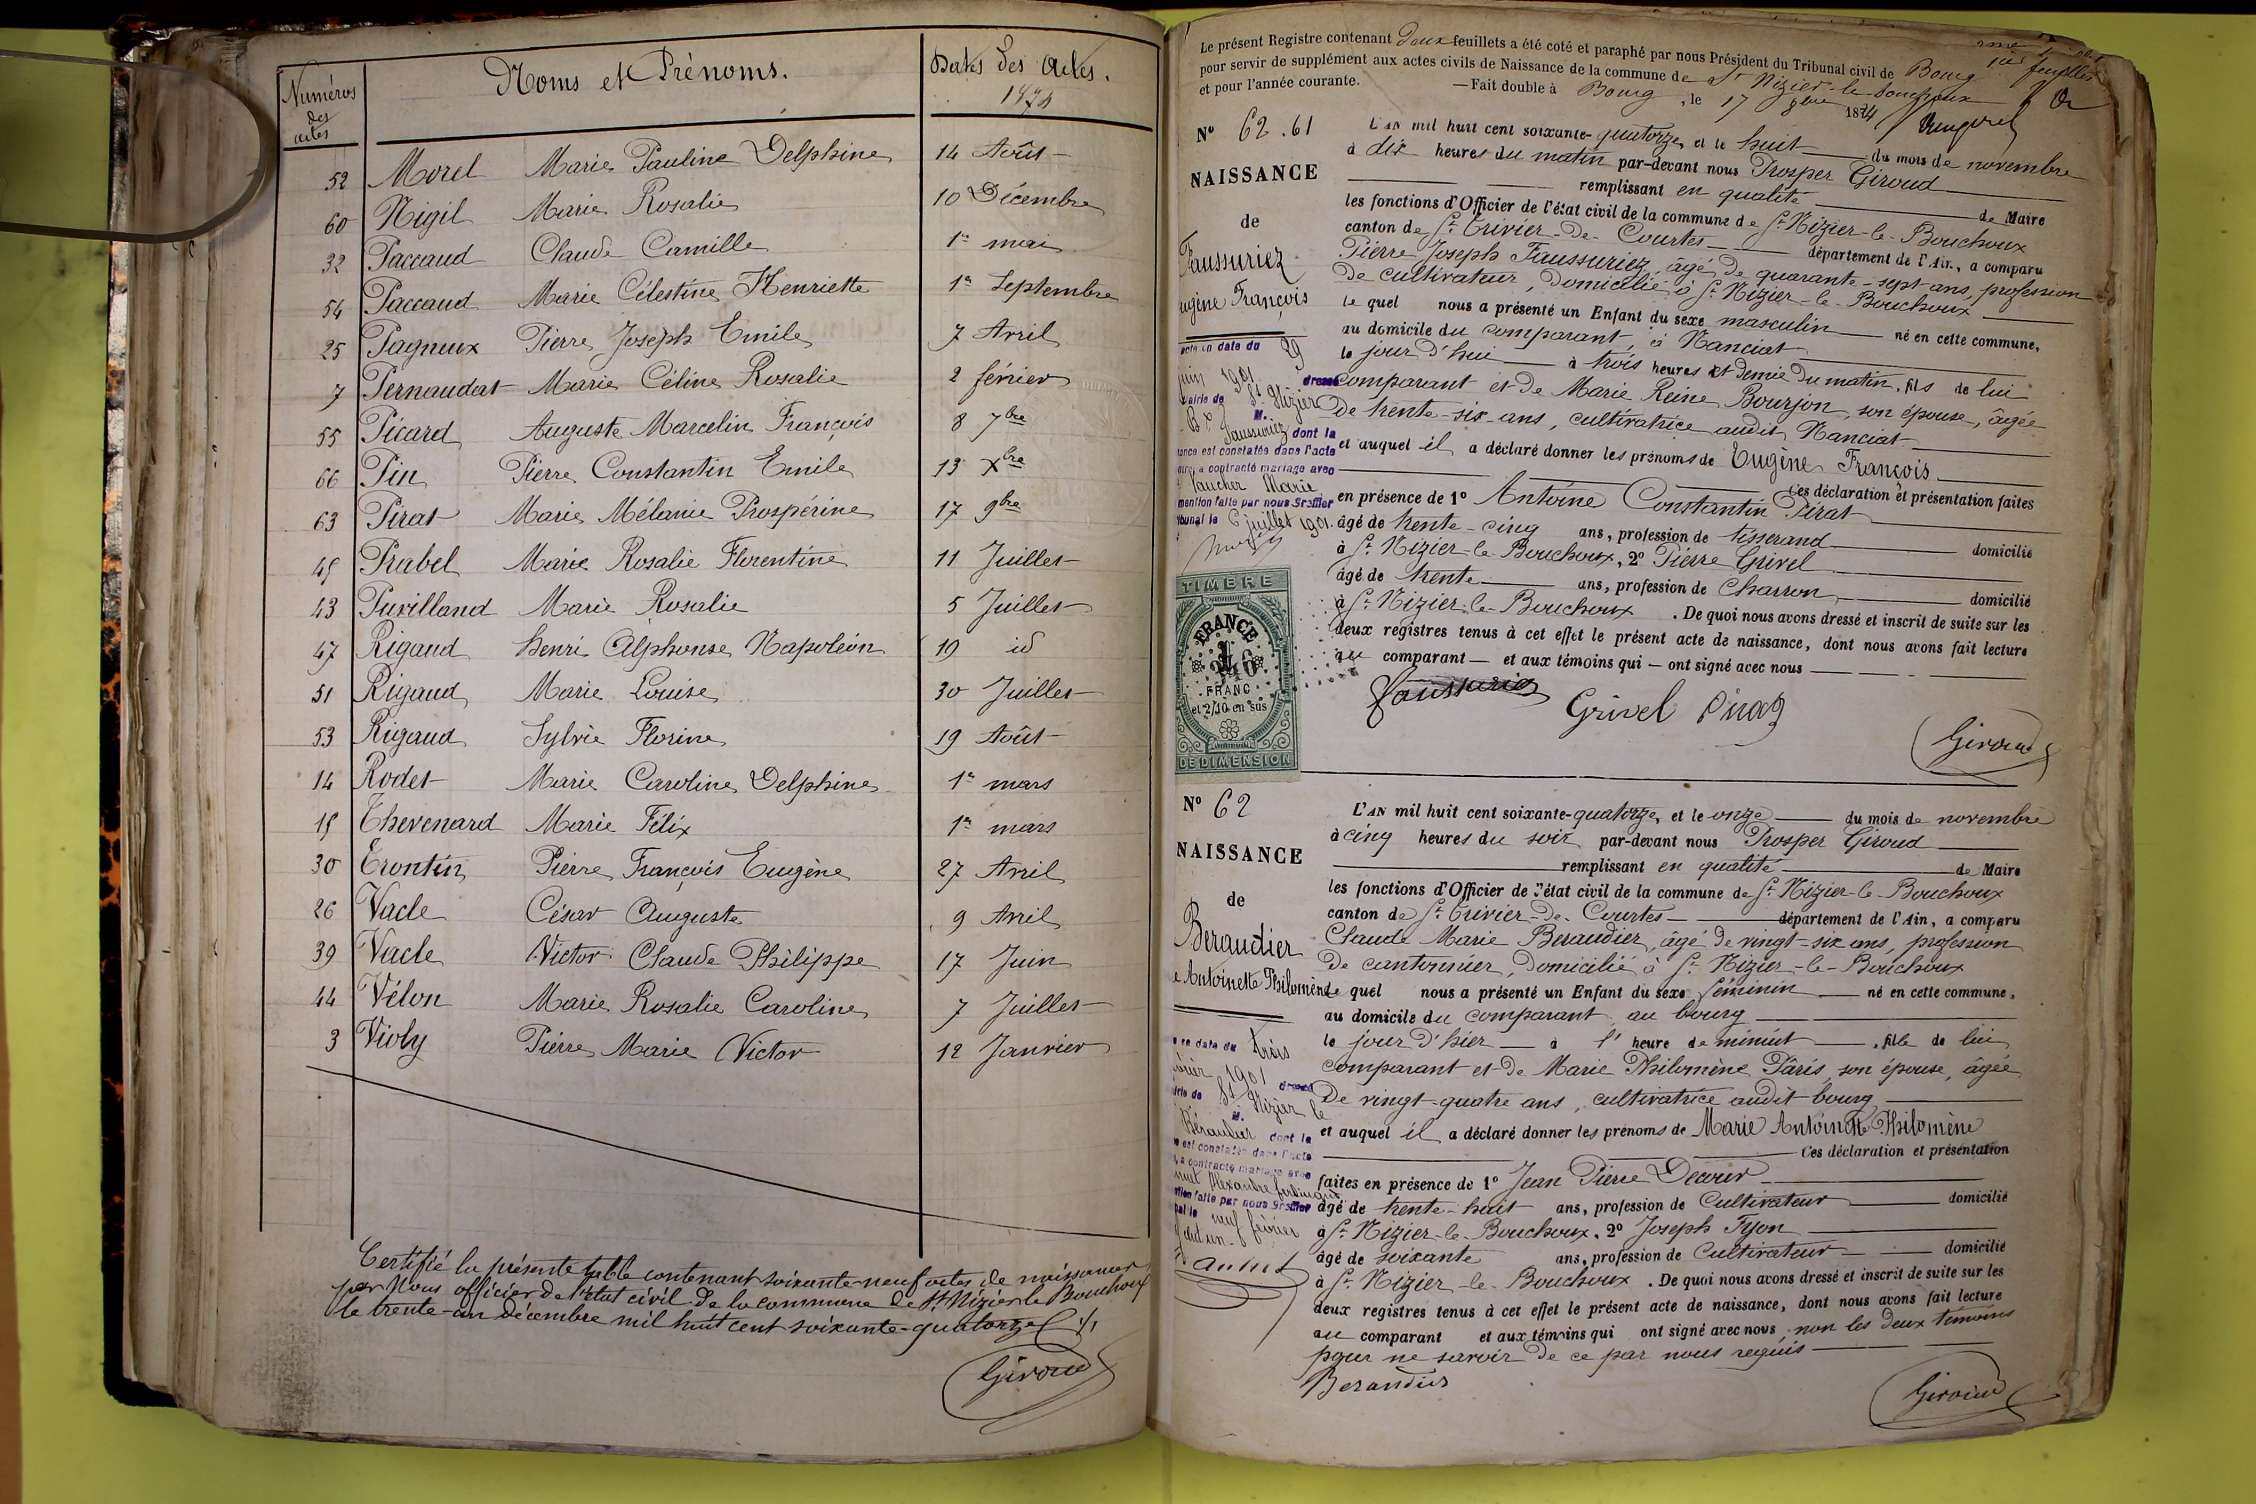 Numéros des actes
Noms et Prénoms.
Dates des Actes.
1874
52 Morel Marie Pauline Delphine 14 Août
60 Nigil Marie Rosalie 10 Décembre
32 Paccaud Claude Camille 1er mai
54 Paccaud Marie Célestine Henriette 1er Septembre
25 Pagneux Pierre Joseph Emile 7 Avril
7 Pernaudat Marie Céline Rosalie 2 février
55 Picard Auguste Marcelin François 8 7bre
66 Pin Pierre Constantin Emile 13 Xbre
63 Pirat Marie Mélanie Prospérine 17 9bre
45 Prabel Marie Rosalie Florentine 11 Juillet
43 Puvilland Marie Rosalie 5 Juillet
47 Rigaud Henri Alphonse Napoléon 19 id
51 Rigaud Marie Louise 30 Juillet
53 Rigaud Sylvie Florine 19 Août
14 Rodet Marie Caroline Delphine 1er mars
15 Thevenard Marie Félix 1er mars
30 Trontin Pierre François Eugène 27 Avril
26 Vacle César Auguste 9 Avril
39 Vacle Victor Claude Philippe 17 Juin
44 Vélon Marie Rosalie Caroline 7 Juillet
3 Violy Pierre Marie Victor 12 Janvier
Certifié la présente table contenant soixante-neuf actes de naissances
par Nous officier de l'état civil de la commune de St Nizier le Bouchoux
le trente-un décembre mil huit cent soixante-quatorze
Giroud
Le présent Registre contenant deux feuillets a été coté et paraphé par nous Président du Tribunal civil de Bourg
pour servir de supplément aux actes civils de Naissance de la commune de St Nizier-le-bouchoux
et pour l'année courante. —Fait double à Bourg, le 17 1874
No 62.61
NAISSANCE
de
Faussuriez
Eugène François
L'AN mil huit cent soixante-quatorze, et le huit du mois de novembre
à dix heures du matin par-devant nous Prosper Giroud
remplissant en qualité de Maire
les fonctions d'Officier de l'état civil de la commune de St Nizier-le-Bouchoux
canton de St Trivier-de-Courtes département de l'Ain, a comparu
Pierre Joseph Faussuriez, âgé de quarante-sept ans, profession
de cultivateur, domicilié à St Nizier-le-Bouchoux
le quel nous a présenté un Enfant du sexe masculin né en cette commune,
au domicile du comparant, à Nanciat
le jour d'hui à trois heures et demie du matin, fils de lui
comparant et de Marie Reine Bourjon, son épouse, âgée
de trente-six ans, cultivatrice audit Nanciat
et auquel il a déclaré donner les prénoms de Eugène François
Ces déclaration et présentation faites
en présence de 1o Antoine Constantin Pirat
âgé de trente-cinq ans, profession de tisserand domicilié
à St Nizier-le-Bouchoux, 2o Pierre Grivel
âgé de trente ans, profession de Charron domicilié
à St Nizier-le-Bouchoux. De quoi nous avons dressé et inscrit de suite sur les
deux registres tenus à cet effet le présent acte de naissance, dont nous avons fait lecture
au comparant et aux témoins qui ont signé avec nous
acte en date du 29
juin 1901 dressé
mairie de St Nizier
Bx M.
Faussuriez dont la
naissance est constatée dans l'acte
a contracté mariage avec
Vaucher Marie
mention faite par nous Greffier
tribunal le 6 juillet 1901.
TIMBRE
FRANCE
1
FRANC
et 2/10 en sus
DE DIMENSION
Faussuriez Grivel Pirat
Giroud
No 62
NAISSANCE
de
Beraudier
Antoinette Philomène
L'AN mil huit cent soixante-quatorze, et le onze du mois de novembre
à cinq heures du soir par-devant nous Prosper Giroud
remplissant en qualité de Maire
les fonctions d'Officier de l'état civil de la commune de St Nizier-le-Bouchoux
canton de St Trivier-de-Courtes département de l'Ain, a comparu
Claude Marie Beraudier, âgé de vingt-six ans, profession
de cantonnier, domicilié à St Nizier-le-Bouchoux
le quel nous a présenté un Enfant du sexe féminin né en cette commune,
au domicile du comparant au bourg
le jour d'hier à l'heure de minuit, fille de lui
comparant et de Marie Philomène Pâris, son épouse, âgée
de vingt-quatre ans, cultivatrice audit bourg
et auquel il a déclaré donner les prénoms de Marie Antoinette Philomène
Ces déclaration et présentation
faites en présence de 1o Jean Pierre Decour
âgé de trente-huit ans, profession de Cultivateur domicilié
à St Nizier-le-Bouchoux, 2o Joseph Fyon
âgé de soixante ans, profession de Cultivateur domicilié
à St Nizier-le-Bouchoux. De quoi nous avons dressé et inscrit de suite sur les
deux registres tenus à cet effet le présent acte de naissance, dont nous avons fait lecture
au comparant et aux témoins qui ont signé avec nous, non les deux témoins
pour ne savoir de ce par nous requis
en date du trois
1901 dressé
St Nizier le
M.
Béraudier dont la
est constatée dans l'acte
a contracté mariage avec
Alexandre
faite par nous Greffier
le neuf février
Beraudier
Giroud